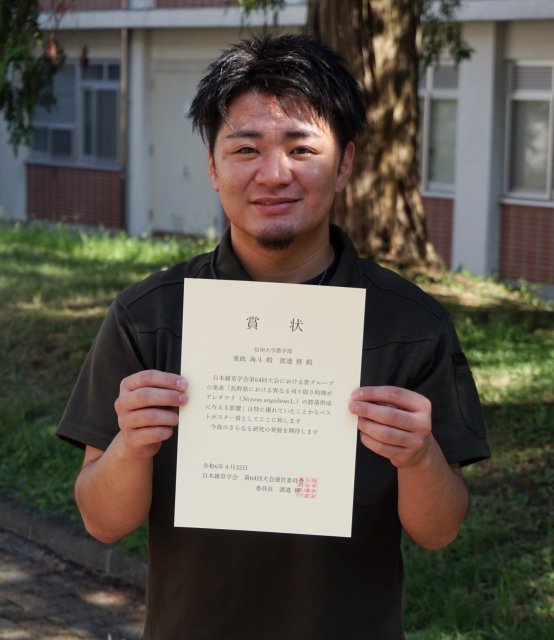 賞 状
信州大学農学部
重政 海斗 殿 渡邉 修 殿
日本雑草学会第64回大会における貴グループ
の発表「長野県における異なる刈り取り時期が
アレチウリ（Sicyous angulatus L.）の群落形成
に与える影響」は特に優れていたことからベス
トポスター賞としてここに称します
今後のさらなる研究の発展を期待します
令和6年4月22日
日本雑草学会 第64回大会運営委員会
委員長 渡邉 修